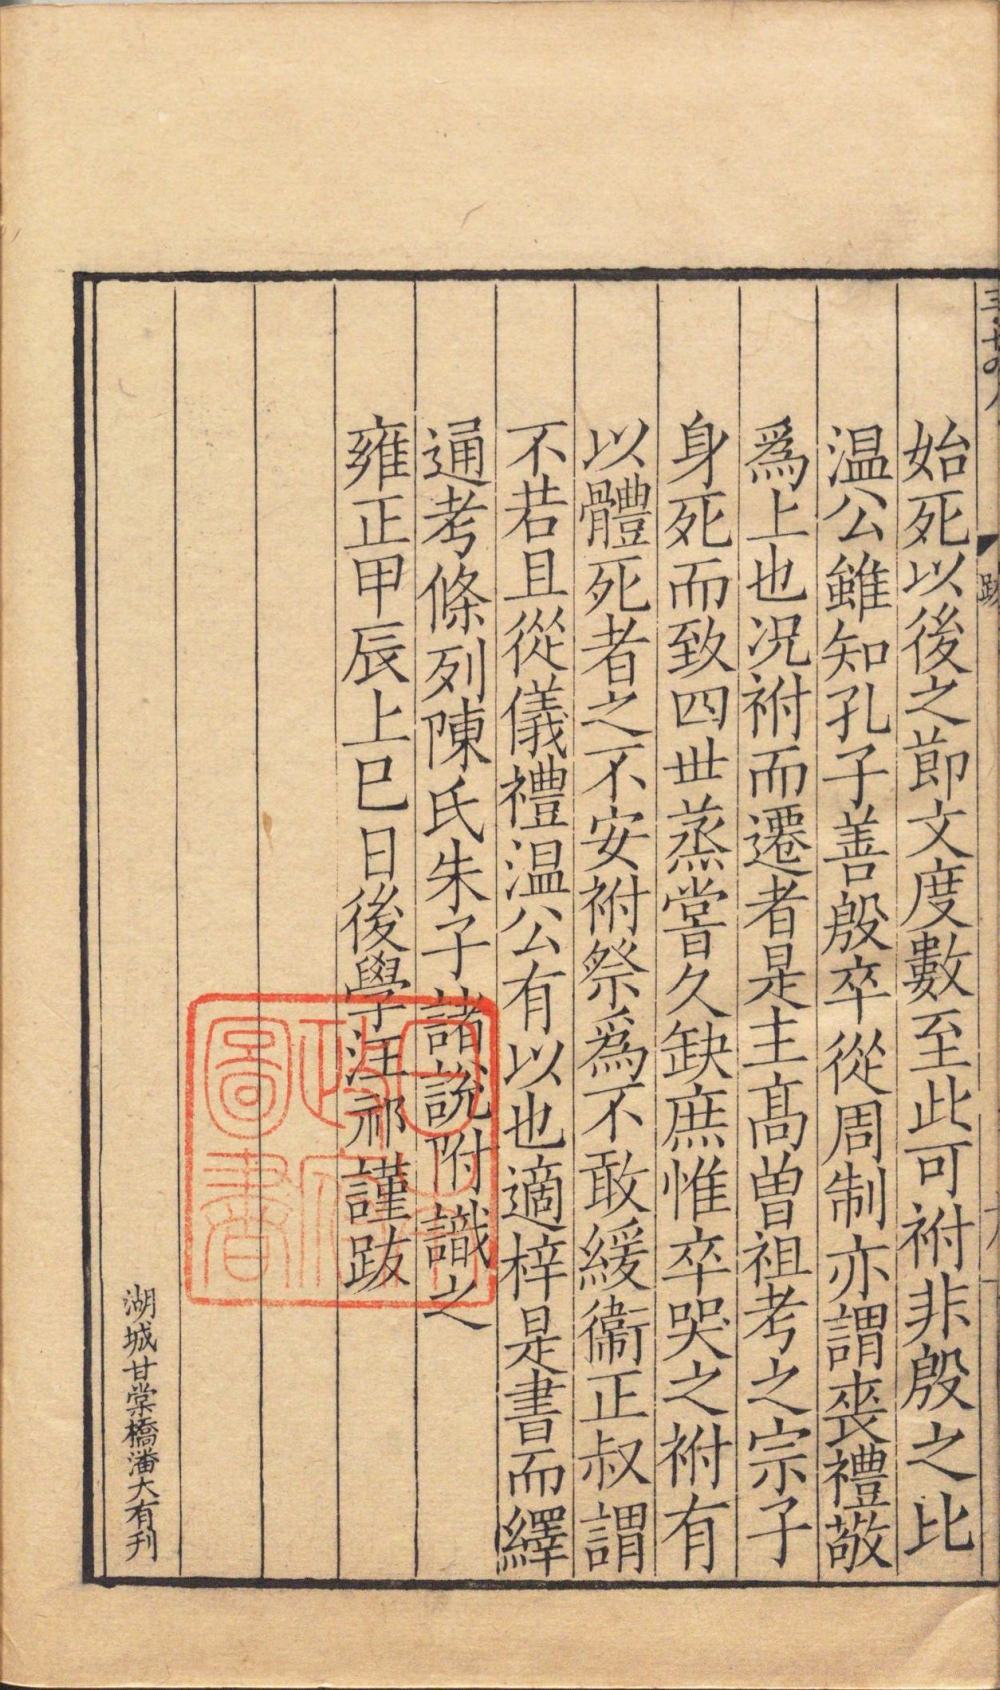 始死以後之節文度數至此可祔非殷之比
温公雖知孔子善殷卒從周制亦謂喪禮敬
爲上也况祔而遷者是主髙曽祖考之宗子
身死而致四世蒸嘗久缺庶惟卒哭之祔有
以體死者之不安祔祭爲不敢緩衞正叔謂
不若且從儀禮温公有以也適梓是書而繹
通考條列陳氏朱子諸說附識之
雍正甲辰上巳日後學汪祁謹跋
湖城甘棠橋潘大有刊